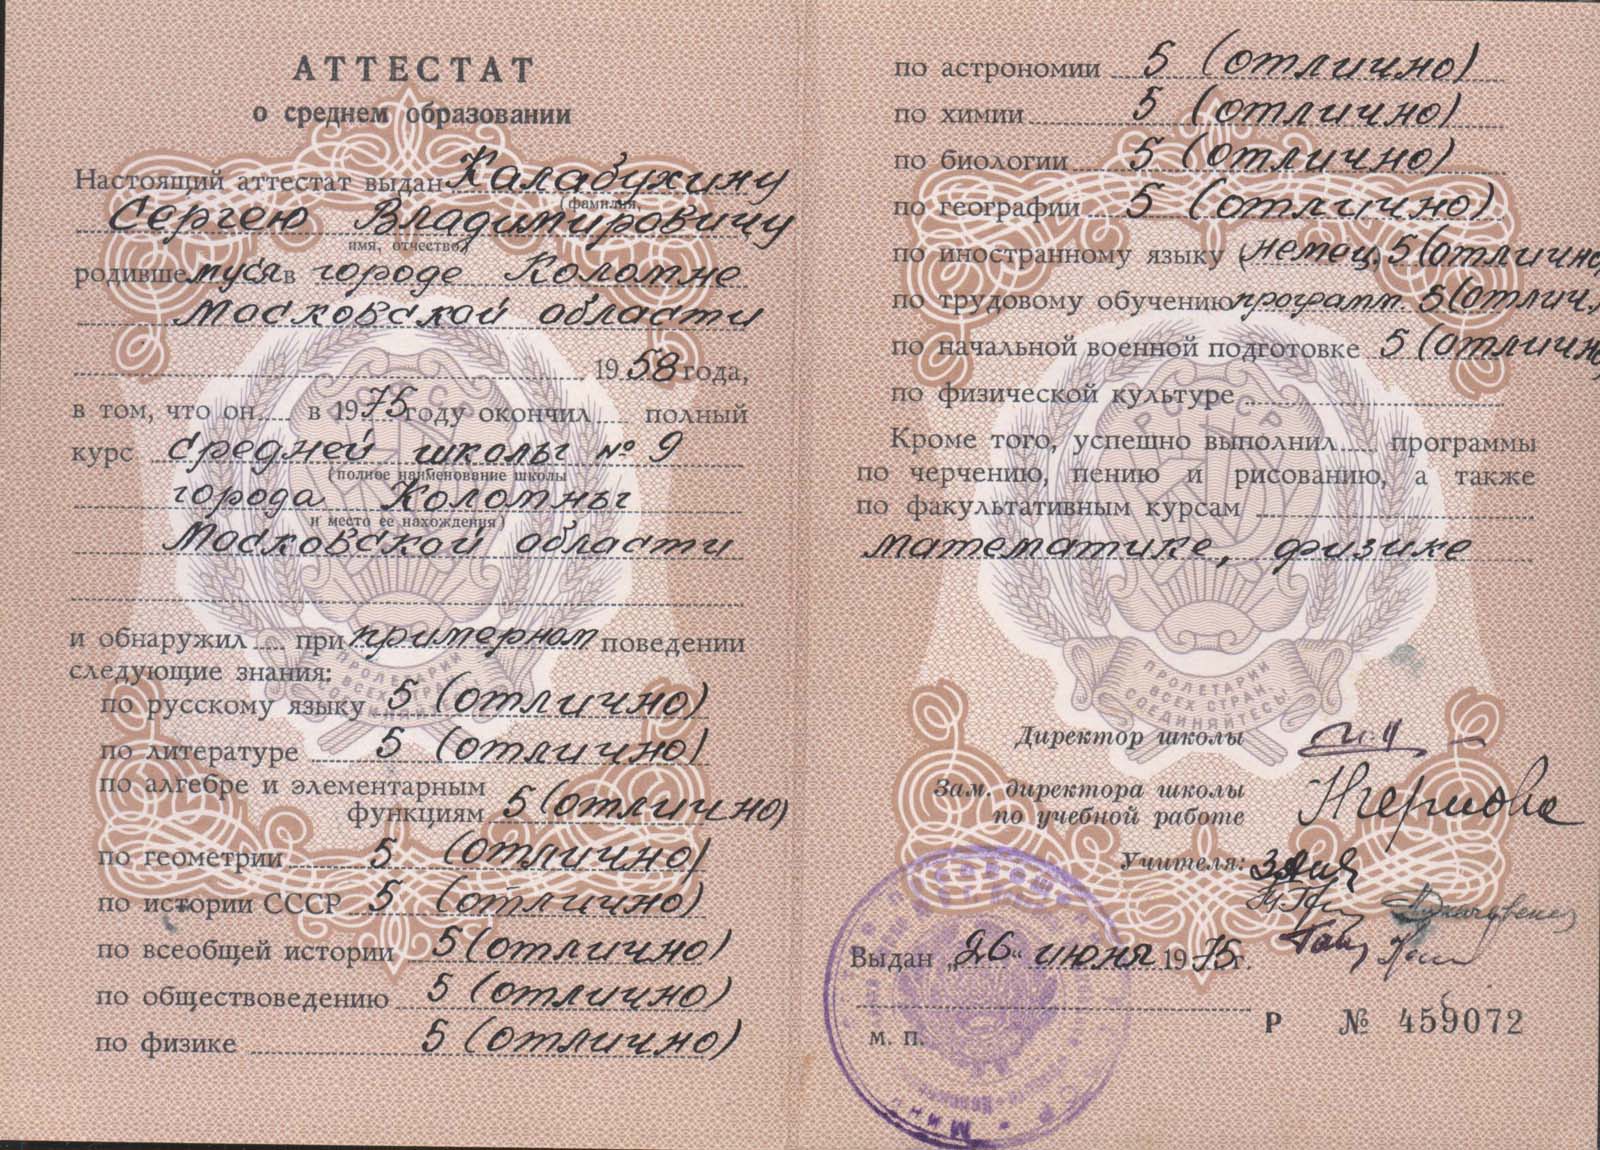 АТТЕСТАТ
о среднем образовании
Настоящий аттестат выдан Калабухину
(фамилия,
Сергею Владимировичу
имя, отчество)
родившемуся в городе Коломне
Московской области
1958 года,
в том, что он в 1975 году окончил полный
курс средней школы № 9
(полное наименование школы
города Коломны
и место ее нахождения)
Московской области
и обнаружил при примерном поведении
следующие знания:
по русскому языку 5 (отлично)
по литературе 5 (отлично)
по алгебре и элементарным
функциям 5 (отлично)
по геометрии 5 (отлично)
по истории СССР 5 (отлично)
по всеобщей истории 5 (отлично)
по обществоведению 5 (отлично)
по физике 5 (отлично)
по астрономии 5 (отлично)
по химии 5 (отлично)
по биологии 5 (отлично)
по географии 5 (отлично)
по иностранному языку (немец. 5 (отлично
по трудовому обучению програмт. 5 (отлич.)
по начальной военной подготовке 5 (отлично)
по физической культуре
Кроме того, успешно выполнил программы
по черчению, пению и рисованию, а также
по факультативным курсам
математике, физике
РСФСР
ПРОЛЕТАРИИ
ВСЕХ СТРАН,
СОЕДИНЯЙТЕСЬ!
Директор школы
Зам. директора школы
по учебной работе
Учителя:
Выдан „26“ июня 1975 г.
м. п.
Р № 459072